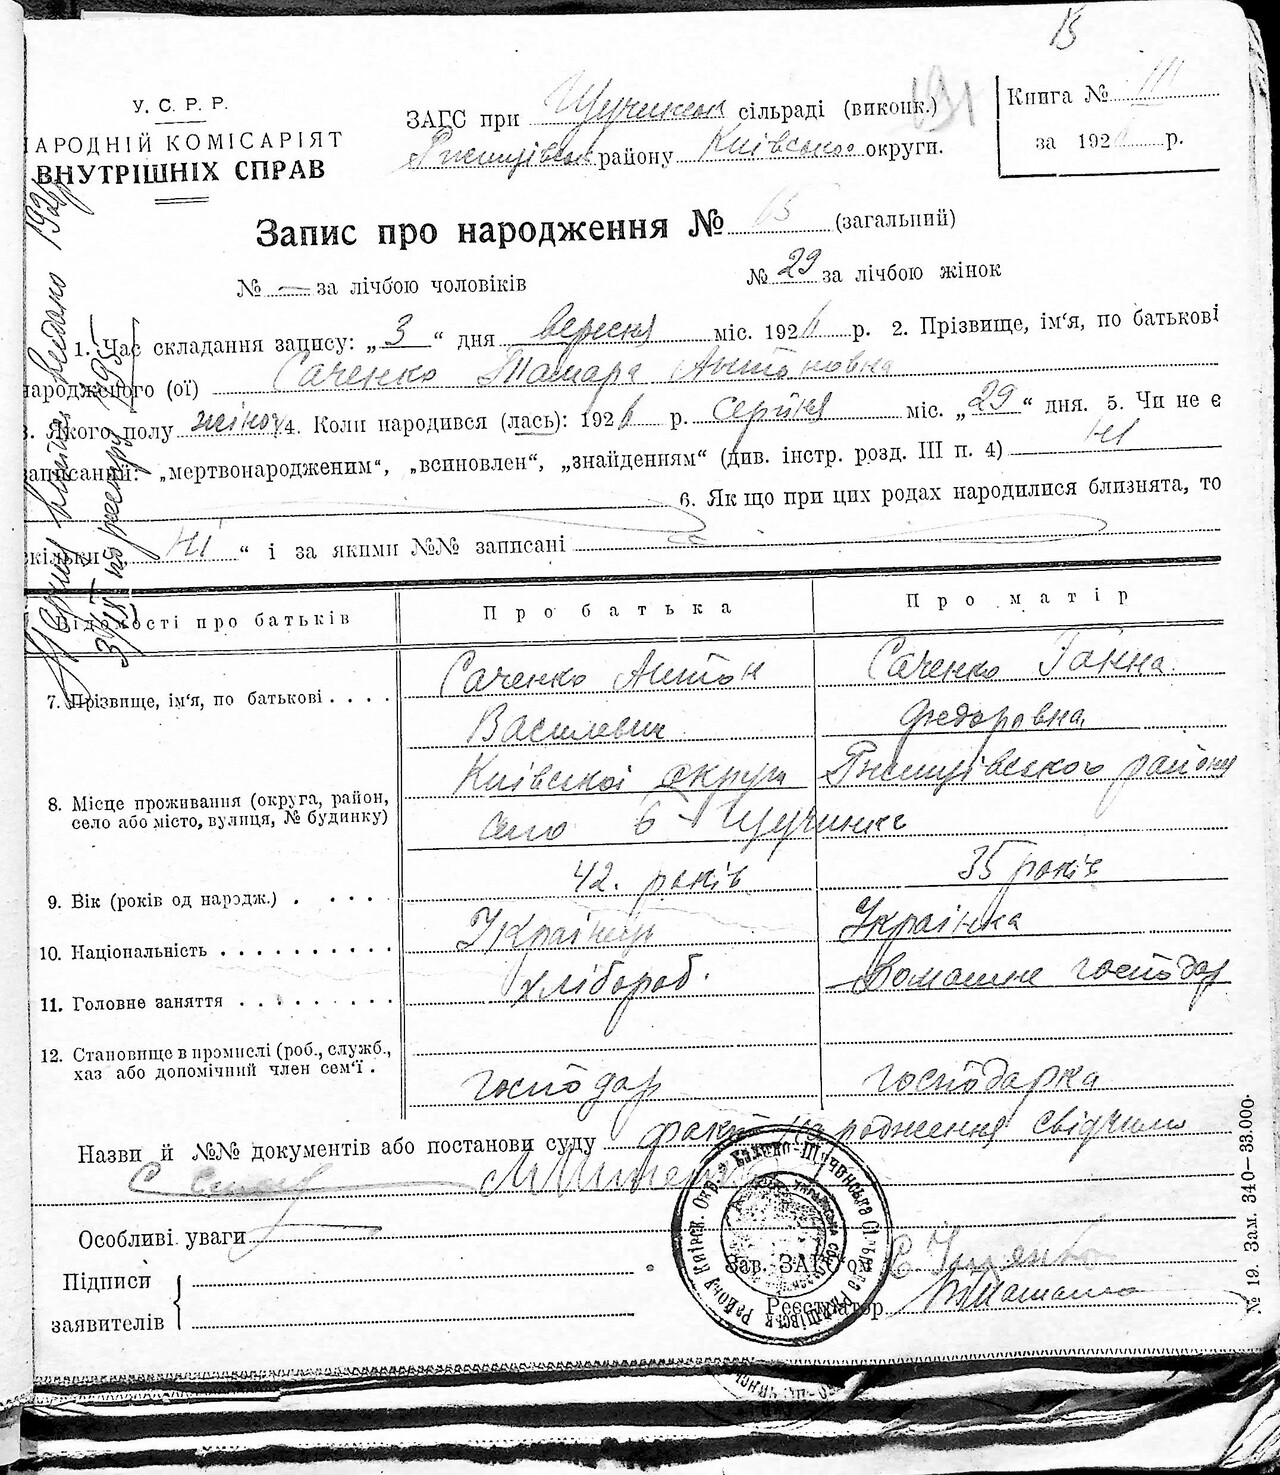 15
У. С. Р. Р.
НАРОДНІЙ КОМІСАРІЯТ
ВНУТРІШНІХ СПРАВ
ЗАГС при сільраді (виконк.)
району Київської округи.
191
Книга № III
за 1926 р.
Запис про народження № 15 (загальний)
№ — за лічбою чоловіків № 29 за лічбою жінок
1. Час складання запису: „3“ дня вересня міс. 1926 р. 2. Прізвище, ім‘я, по батькові
народженого (ої) Саченко Тамара Антоновна
3. Якого полу жіноч 4. Коли народився (лась): 1926 р. серпня міс. „29“ дня. 5. Чи не є
записаний: „мертвонародженим“, „всиновлен“, „знайденням“ (див. інстр. розд. III п. 4) Ні
6. Якщо при цих родах народилися близнята, то
скільки „ Ні “ і за якими №№ записані
Відомості про батьків Про батька Про матір
7. Прізвище, ім‘я, по батькові . . . . Саченко Антон Саченко Ганна
Василевич Федоровна
8. Місце проживання (округа, район, Київскої округи Ржищівського району
село або місто, вулиця, № будинку) село Б-Щучинка
9. Вік (років од народж.) . . . . . 42. років 35 років
10. Національність . . . . . . . . . Українець Українка
11. Головне заняття . . . . . . . . хлібороб. Домашне господар
12. Становище в промислі (роб., служб.,
хаз або допомічний член сем‘ї . господар господарка
Назви й №№ документів або постанови суду факт народження свідчили
Особливі уваги
Підписи
заявителів
Зав. ЗАГС‘ом
Реєстратор
№ 19. Зам. 340—33.000.
1926
1955